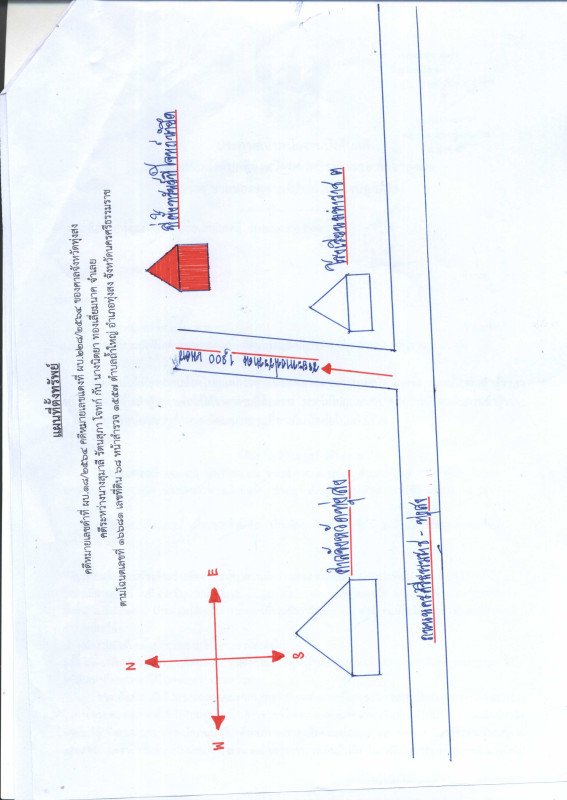 แผนที่ตั้งทรัพย์
คดีหมายเลขดำที่ ผบ.๑๘/๒๕๖๔ คดีหมายเลขแดงที่ ผบ.๒๒๘/๒๕๖๔ ของศาลจังหวัดทุ่งสง
คดีระหว่างนางสุมาลี รัตนสุภา โจทก์ กับ นางนิตยา ทองเสี่ยมนาค จำเลย
ตามโฉนดเลขที่ ๑๖๖๘๑ เลขที่ดิน ๖๘ หน้าสำรวจ ๑๕๕๗ ตำบลถ้ำใหญ่ อำเภอทุ่งสง จังหวัดนครศรีธรรมราช
ที่ตั้งทรัพย์ที่โจทก์นำยึด
N
E
W
S
ระยะทางประมาณ 1,200 เมตร
ศาลจังหวัดทุ่งสง
ถนนนครศรีธรรมราช - ทุ่งสง